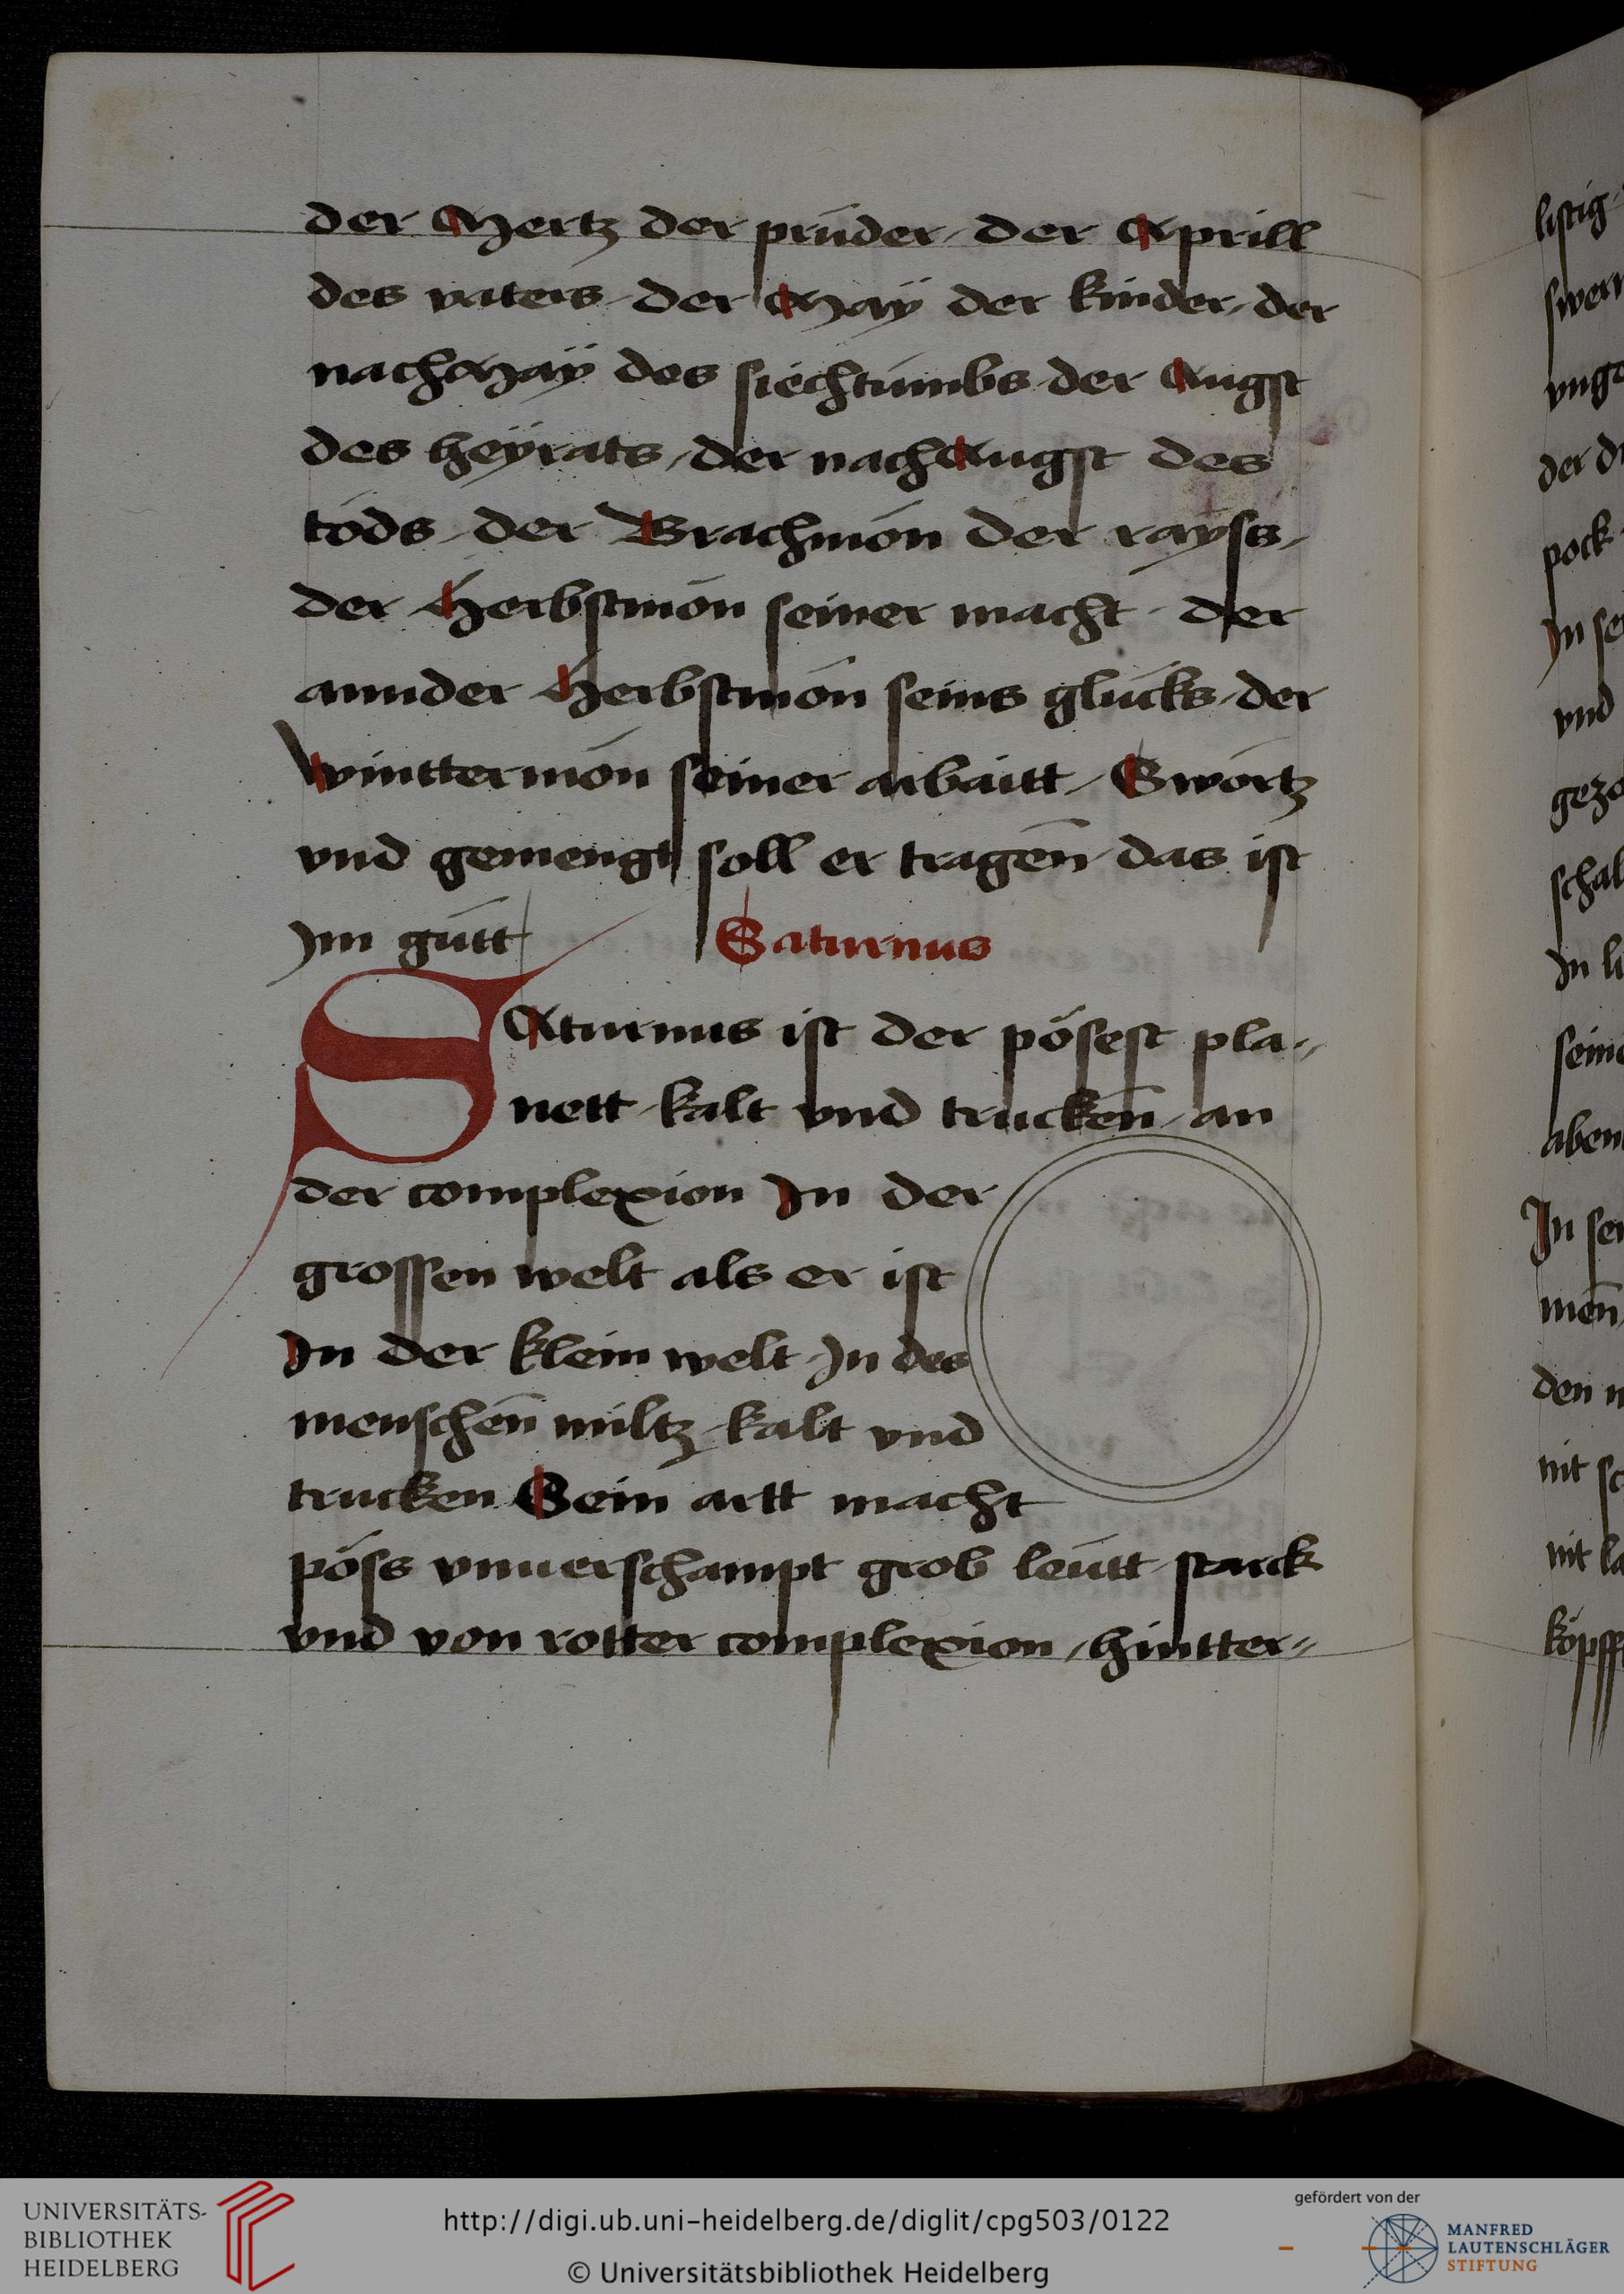 der Mertz der prúder / der Aprill
des vaters / der May̋ der kinder / der
nachmaÿ des siechtúmbs der Augst
des heÿrats / der nachaugst des
tods / der Brachmon der rayss /
der Herbstmon seiner macht / der
annder Herbstmon seins glúcks / der
Winttermon seiner arbaitt / Swortz
vnd gemengt soll er tragen̄ das ist
Jm gútt
Saturnus
SAturnus ist der pösest pla⸗
nett kalt vnd trucken̄ / an
der complexion Jn der
grossen welt als er ist
Jn der klein welt Jn des
menschen̄ miltz kalt vnd
trucken Sein artt macht
pöss vnuerschampt grob leútt starck
vnd von rotter complexion / hintter⸗
listig
vnd
pock
Jn
vnd
Jn
den
nit
nit
UNIVERSITÄTS-
BIBLIOTHEK
HEIDELBERG
http://digi.ub.uni-heidelberg.de/diglit/cpg503/0122
© Universitätsbibliothek Heidelberg
gefördert von der
MANFRED
LAUTENSCHLÄGER
STIFTUNG